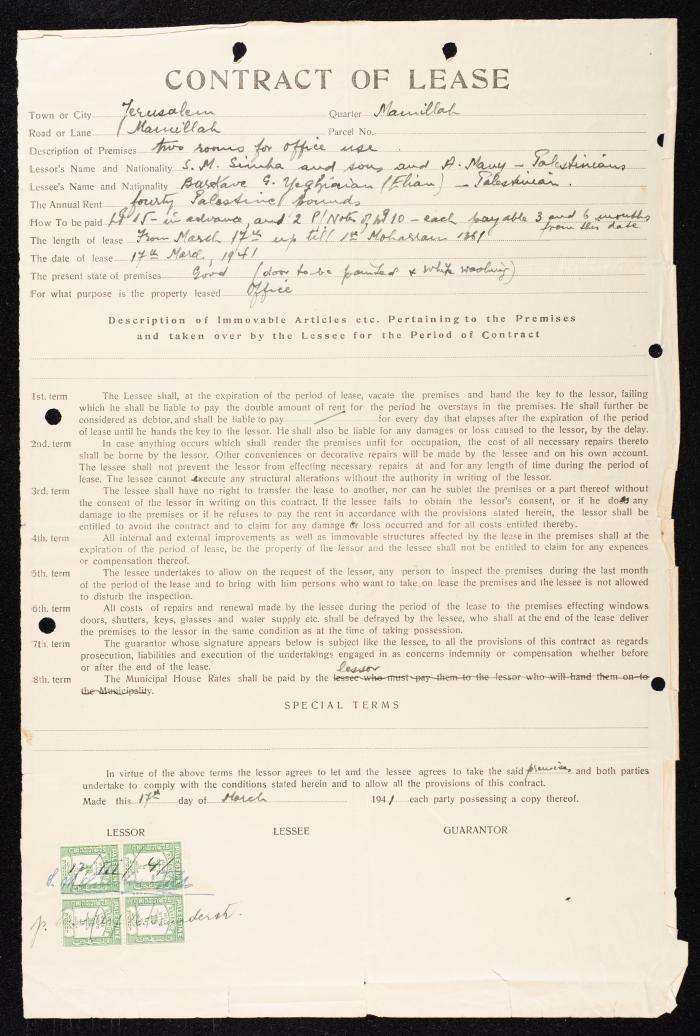 CONTRACT OF LEASE
Town or City Jerusalem Quarter Mamillah
Road or Lane Mamillah Parcel No.
Description of Premises two rooms for office use
Lessor's Name and Nationality S. M. Simha and sons and A. Navy – Palestinians
Lessee's Name and Nationality G. Yeghiaian (Elian) – Palestinian.
The Annual Rent fourty Palestine Pounds
How To be paid 15 – in advance, and 2 P/Notes of 10 – each payable 3 and 6 months
from this date
The length of lease From March 17th up till 1st Moharram 1361
The date of lease 17th March, 1941
The present state of premises Good (door to be painted & white washing)
For what purpose is the property leased Office
Description of Immovable Articles etc. Pertaining to the Premises
and taken over by the Lessee for the Period of Contract
1st. term The Lessee shall, at the expiration of the period of lease, vacate the premises and hand the key to the lessor, failing
which he shall be liable to pay the double amount of rent for the period he overstays in the premises. He shall further be
considered as debtor, and shall be liable to pay for every day that elapses after the expiration of the period
of lease until he hands the key to the lessor. He shall also be liable for any damages or loss caused to the lessor, by the delay.
2nd. term In case anything occurs which shall render the premises unfit for occupation, the cost of all necessary repairs thereto
shall be borne by the lessor. Other conveniences or decorative repairs will be made by the lessee and on his own account.
The lessee shall not prevent the lessor from effecting necessary repairs at and for any length of time during the period of
lease. The lessee cannot execute any structural alterations without the authority in writing of the lessor.
3rd. term The lessee shall have no right to transfer the lease to another, nor can he sublet the premises or a part thereof without
the consent of the lessor in writing on this contract. If the lessee fails to obtain the lessor's consent, or if he does any
damage to the premises or if he refuses to pay the rent in accordance with the provisions stated herein, the lessor shall be
entitled to avoid the contract and to claim for any damage or loss occurred and for all costs entitled thereby.
4th. term All internal and external improvements as well as immovable structures affected by the lease in the premises shall at the
expiration of the period of lease, be the property of the lessor and the lessee shall not be entitled to claim for any expences
or compensation thereof.
5th. term The lessee undertakes to allow on the request of the lessor, any person to inspect the premises during the last month
of the period of the lease and to bring with him persons who want to take, on lease the premises and the lessee is not allowed
to disturb the inspection.
6th. term All costs of repairs and renewal made by the lessee during the period of the lease to the premises effecting windows
doors, shutters, keys, glasses and water supply etc. shall be defrayed by the lessee, who shall at the end of the lease deliver
the premises to the lessor in the same condition as at the time of taking possession.
7th. term The guarantor whose signature appears below is subject like the lessee, to all the provisions of this contract as regards
prosecution, liabilities and execution of the undertakings engaged in as concerns indemnity or compensation whether before
or after the end of the lease.
lessor
8th. term The Municipal House Rates shall be paid by the lessee who must pay them to the lessor who will hand them on to
the Municipality.
SPECIAL TERMS
In virtue of the above terms the lessor agrees to let and the lessee agrees to take the said premises and both parties
undertake to comply with the conditions stated herein and to allow all the provisions of this contract.
Made this 17th day of March 1941 each party possessing a copy thereof.
LESSOR LESSEE GUARANTOR
PALESTINE PALESTINE
17 III 41
PALESTINE PALESTINE